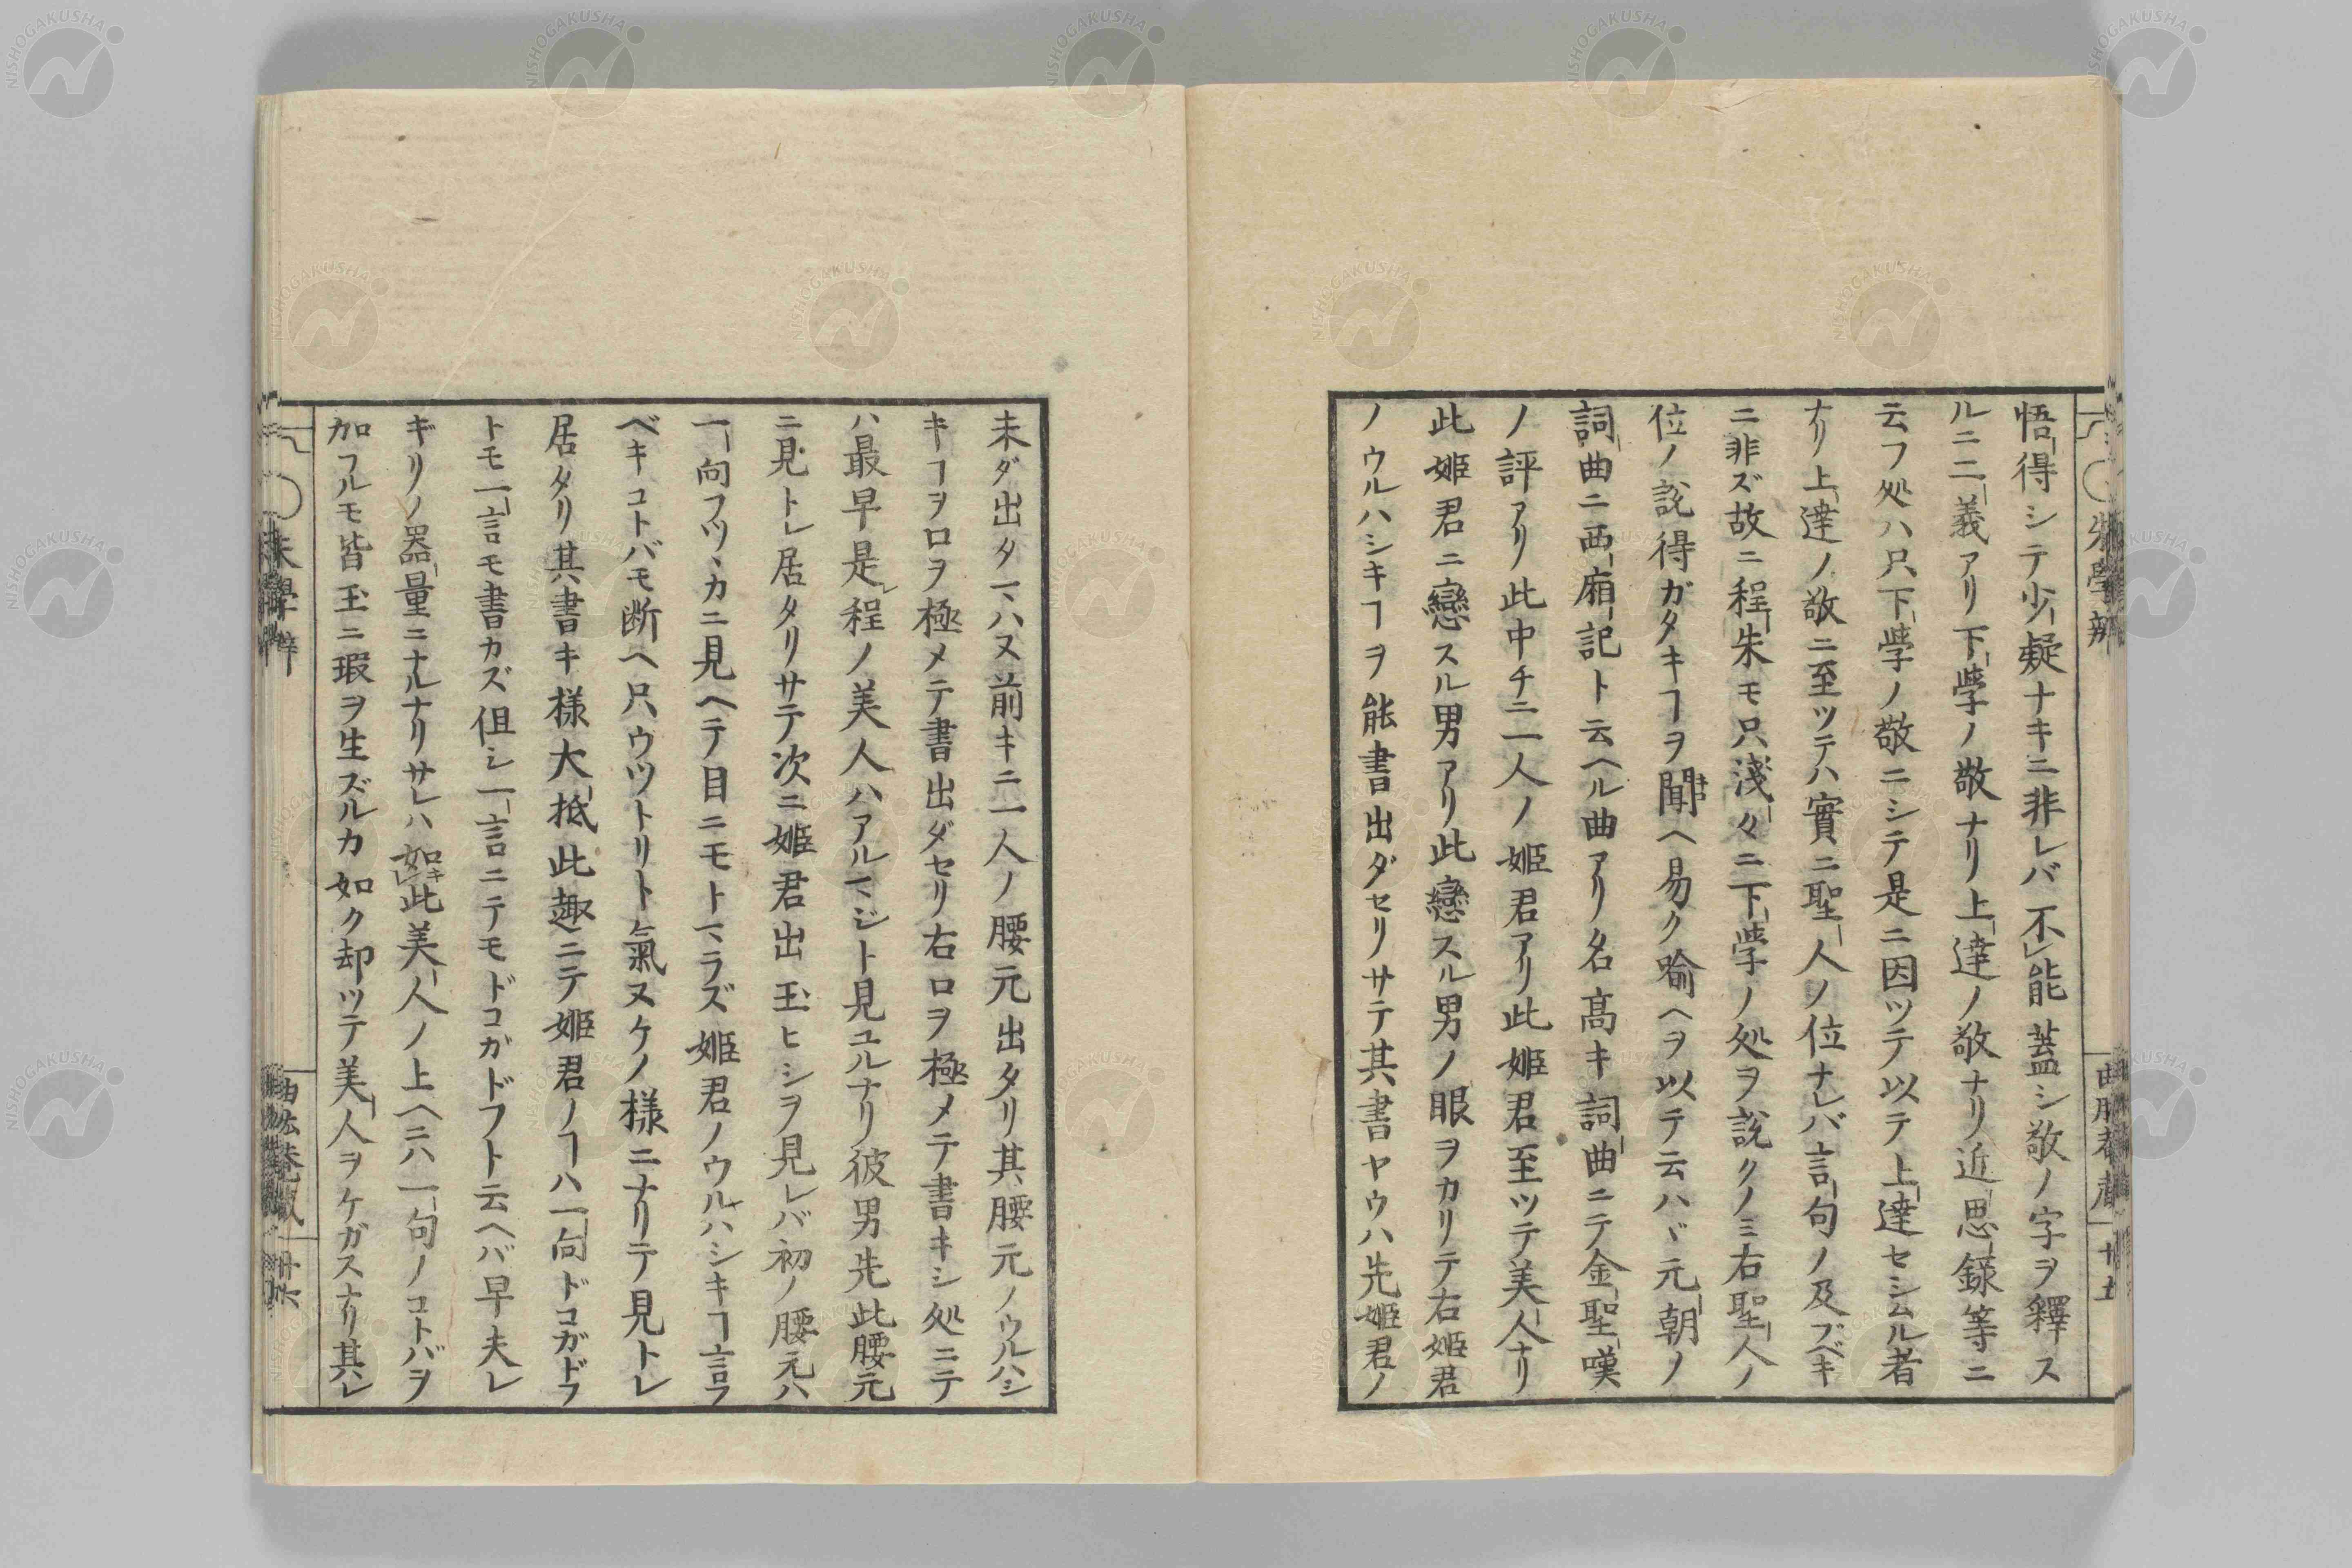 悟得シテ少疑ナキニ非レバ不レ能蓋シ敬ノ字ヲ釋ス
ルニ二義アリ下學ノ敬ナリ上達ノ敬ナリ近思録等ニ
云フ処ハ只下學ノ敬ニシテ是ニ因ツテ以テ上達セシムル者
ナリ上達ノ敬ニ至ツテハ實ニ聖人ノ位ナレバ言句ノ及ブベキ
ニ非ズ故ニ程朱モ只淺々ニ下學ノ処ヲ説クノミ右聖人ノ
位ノ説得ガタキヿヲ聞ヘ易ク喩ヘヲ以テ云ハヾ元朝ノ
詞曲ニ西廂記ト云ヘル曲アリ名髙キ詞曲ニテ金聖嘆
ノ評アリ此中チニ一人ノ姫君アリ此姫君至ツテ美人ナリ
此姫君ニ戀スル男アリ此戀スル男ノ眼ヲカリテ右姫君
ノウルハシキヿヲ能書出ダセリサテ其書ヤウハ先姫君ノ
未ダ出タマハヌ前キニ一人ノ腰元出タリ其腰元ノウルハシ
キヿヲ口ヲ極メテ書出ダセリ右口ヲ極メテ書キシ処ニテ
ハ最早是レ程ノ美人ハアルマジト見ユルナリ彼男先此腰元
ニ見トレ居タリサテ次ニ姫君出玉ヒシヲ見レバ初ノ腰元ハ
一向フツヽカニ見ヘテ目ニモトマラズ姫君ノウルハシキヿ言フ
ベキコトバモ断ヘ只ウツトリト氣ヌケノ様ニナリテ見トレ
居タリ其書キ様大抵此趣ニテ姫君ノヿハ一向ドコガドフ
トモ一言モ書カズ但シ一言ニテモドコガドフト云ヘバ早夫レ
ギリノ器量ニナルナリサレハ如キレ此美人ノ上ヘニハ一句ノコトバヲ
加フルモ皆玉ニ瑕ヲ生ズルカ如ク却ツテ美人ヲケガスナリ其レ
朱學辨
廿五
朱學辨
廿六
NISHOGAKUSHA